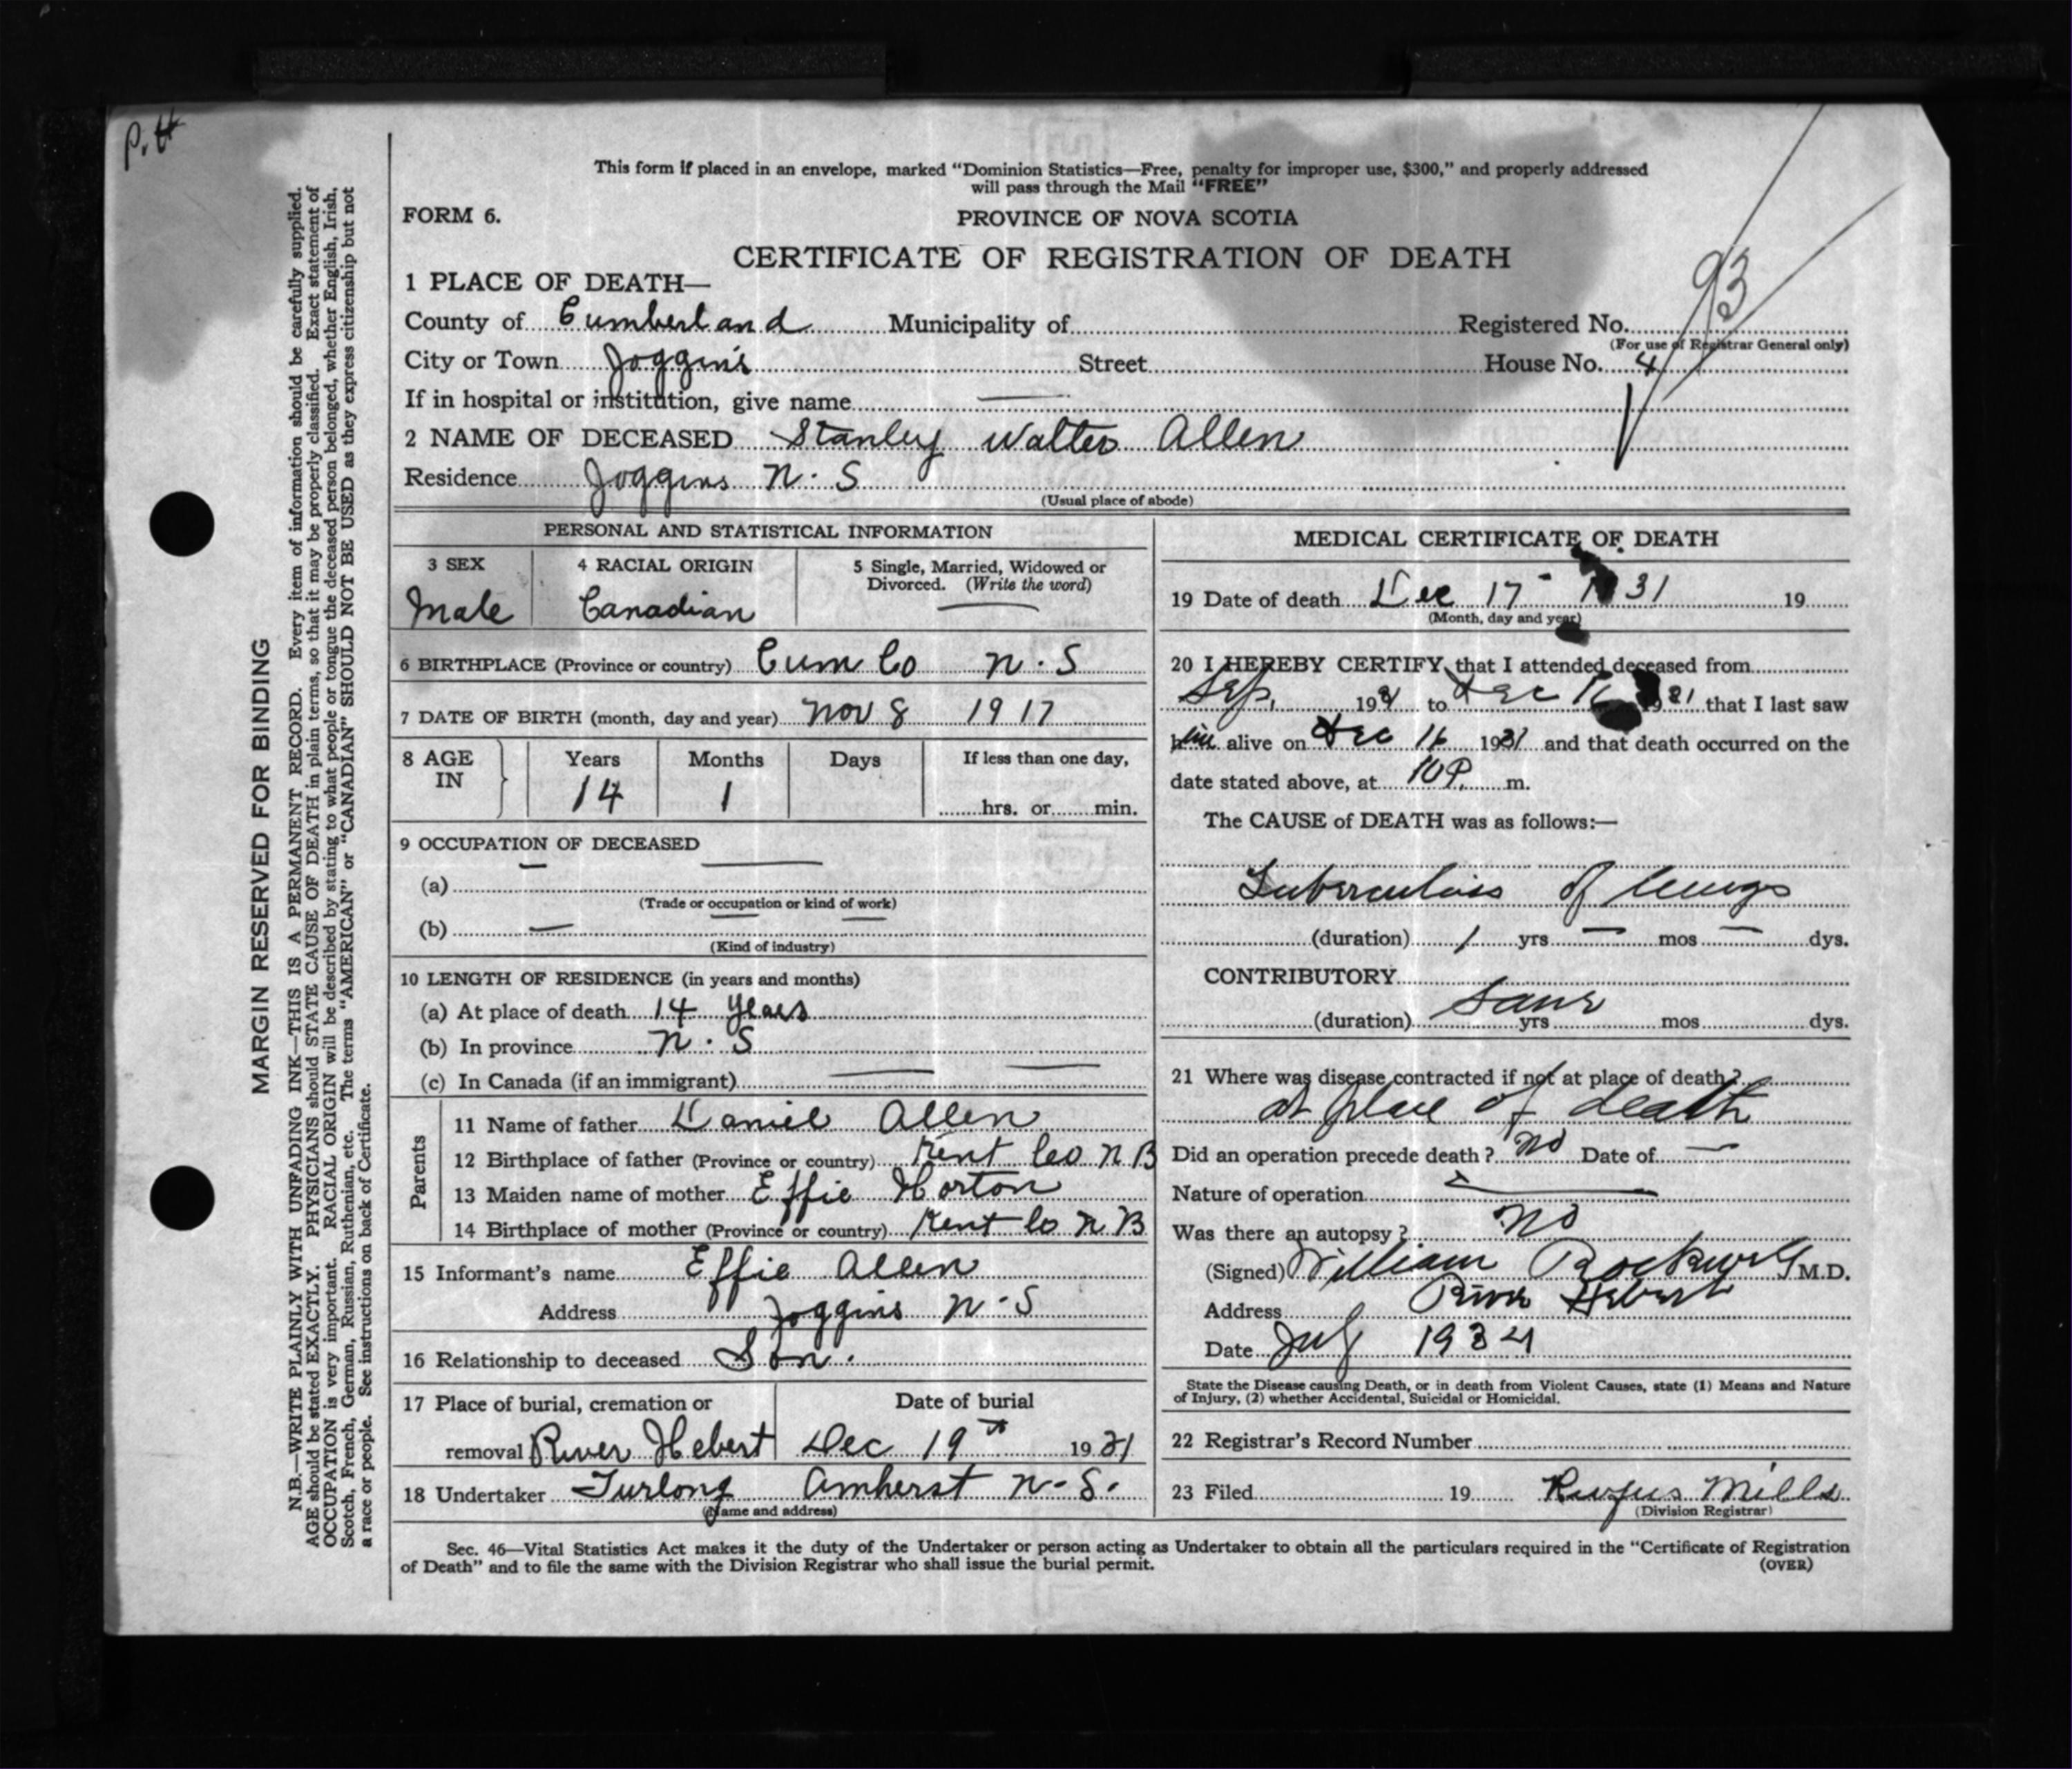 P.H
This form if placed in an envelope, marked “Dominion Statistics—Free, penalty for improper use, $300,” and properly addressed
will pass through the Mail “FREE”
FORM 6.
PROVINCE OF NOVA SCOTIA
CERTIFICATE OF REGISTRATION OF DEATH
93
1 PLACE OF DEATH—
County of Cumberland Municipality of Registered No.
(For use of Registrar General only)
City or Town Joggins Street House No. 4
If in hospital or institution, give name —
2 NAME OF DECEASED Stanley Walter Allen
Residence Joggins N.S
(Usual place of abode)
PERSONAL AND STATISTICAL INFORMATION
3 SEX
Male
4 RACIAL ORIGIN
Canadian
5 Single, Married, Widowed or
Divorced. (Write the word)
—
6 BIRTHPLACE (Province or country) Cum Co N.S
7 DATE OF BIRTH (month, day and year) Nov 8 1917
8 AGE IN
Years Months Days If less than one day,
14 1 hrs. or min.
9 OCCUPATION OF DECEASED
(a)
(Trade or occupation or kind of work)
(b) —
(Kind of industry)
10 LENGTH OF RESIDENCE (in years and months)
(a) At place of death 14 years
(b) In province N.S
(c) In Canada (if an immigrant) —
Parents
11 Name of father Daniel Allen
12 Birthplace of father (Province or country) Kent Co N B
13 Maiden name of mother Effie Horton
14 Birthplace of mother (Province or country) Kent Co N B
15 Informant's name Effie Allen
Address Joggins N.S
16 Relationship to deceased Son.
17 Place of burial, cremation or
removal River Hebert
Date of burial
Dec 19th 1931
18 Undertaker Furlong Amherst N.S.
(Name and address)
MEDICAL CERTIFICATE OF DEATH
19 Date of death Dec 17 1931 19
(Month, day and year)
20 I HEREBY CERTIFY, that I attended deceased from
Sep, 1931 to Dec 16 1931 that I last saw
him alive on Dec 16 1931 and that death occurred on the
date stated above, at 10 P. m.
The CAUSE of DEATH was as follows:—
Tuberculosis of lungs
(duration) 1 yrs — mos — dys.
CONTRIBUTORY
(duration) yrs mos dys.
21 Where was disease contracted if not at place of death?
at place of death
Did an operation precede death? No Date of —
Nature of operation —
Was there an autopsy? No
(Signed) William Rockwell M.D.
Address River Hebert
Date
State the Disease causing Death, or in death from Violent Causes, state (1) Means and Nature
of Injury, (2) whether Accidental, Suicidal or Homicidal.
22 Registrar's Record Number
23 Filed 19 Rufus Mills
(Division Registrar)
Sec. 46—Vital Statistics Act makes it the duty of the Undertaker or person acting as Undertaker to obtain all the particulars required in the “Certificate of Registration
of Death” and to file the same with the Division Registrar who shall issue the burial permit.
(OVER)
MARGIN RESERVED FOR BINDING
N.B.—WRITE PLAINLY WITH UNFADING INK—THIS IS A PERMANENT RECORD. Every item of information should be carefully supplied.
AGE should be stated EXACTLY. PHYSICIANS should STATE CAUSE OF DEATH in plain terms, so that it may be properly classified. Exact statement of
OCCUPATION is very important. RACIAL ORIGIN will be described by stating to what people or tongue the deceased person belonged, whether English, Irish,
Scotch, French, German, Russian, Ruthenian, etc. The terms “AMERICAN” or “CANADIAN” SHOULD NOT BE USED as they express citizenship but not
a race or people. See instructions on back of Certificate.